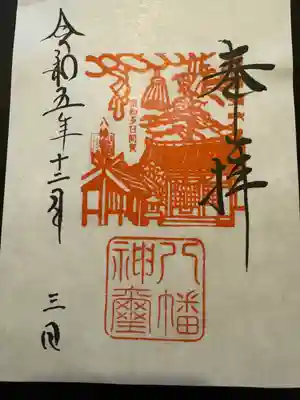 奉拝
八幡
神璽
令和五年十二月
三日